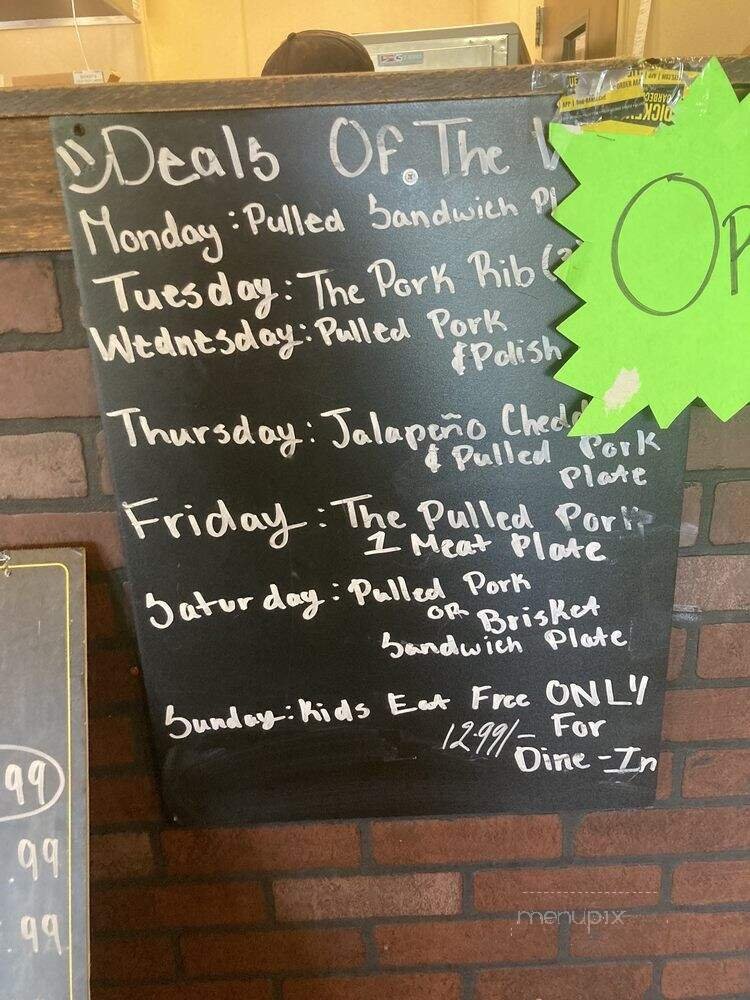 "Deals Of The
Monday: Pulled Sandwich Pl
Tuesday: The Pork Rib (2
Wednesday: Pulled Pork
& Polish
Thursday: Jalapeño Chedd
& Pulled Pork
Plate
Friday: The Pulled Pork
1 Meat Plate
Saturday: Pulled Pork
OR Brisket
Sandwich Plate
Sunday: Kids Eat Free ONLY
12.99/- For
Dine-In
Op
99
99
99
menupix